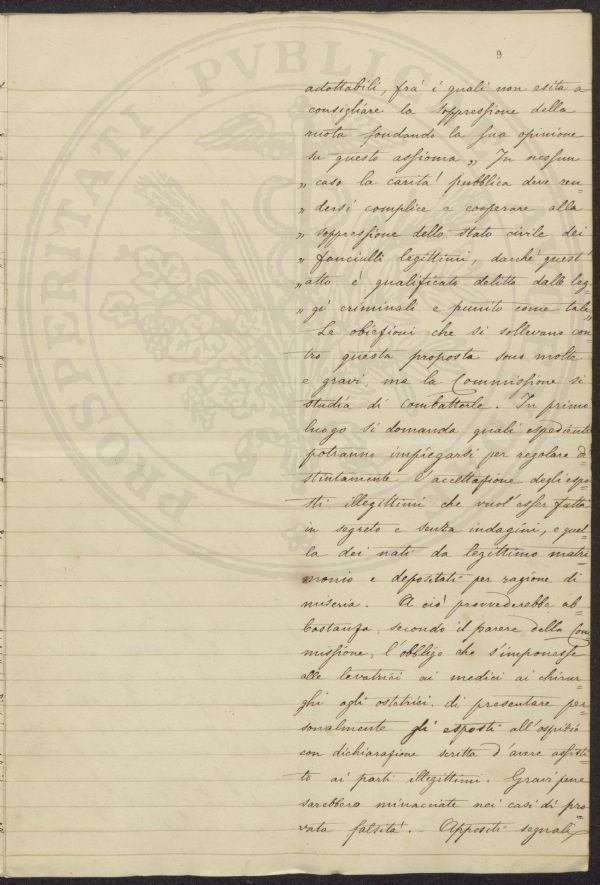 9
adottabili, frà i quali non esita a
consigliare la soppressione della
ruota fondando la sua opinione
su questo assioma „ In nessun
„ caso la carità pubblica deve ren=
„ dersi complice e cooperare alla
„ soppressione dello stato civile dei
„ fanciulli legittimi, dacchè quest'
„ atto è qualificato delitto dalle leg
„ gi criminali e punito come tale „
Le obiezioni che si sollevano con=
tro questa proposta sono molte
e gravi, ma la Commissione si
studia di combatterle. In primo
luogo si domanda quali espedienti
potranno impiegarsi per regolare di=
stintamente l'accettazione degli espo=
sti illegittimi che vuol'esser fatta
in segreto e senza indagini, e quel=
la dei nati da legittimo matri=
monio e depositati per ragione di
miseria. A ciò provvederebbe ab=
bastanza, secondo il parere della Com
missione, l'obbligo che s'imponesse
alle levatrici ai medici ai chirur=
ghi agli ostetrici di presentare per=
sonalmente gli esposti all'ospizio
con dichiarazione scritta d'avere assisti=
to ai parti illegittimi. Gravi pene
sarebbero minacciate nei casi di pro=
vata falsità. — Appositi segnali
PROSPERITATI PVBLIC